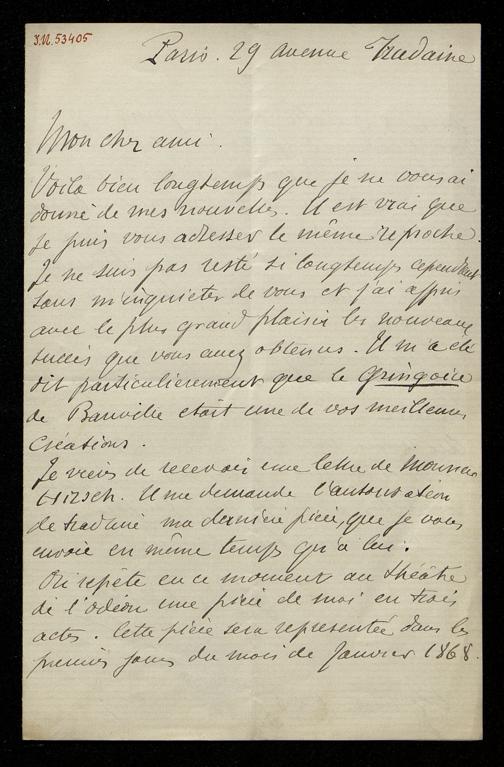 J.N. 53405
Paris. 29 avenue Trudaine
Mon cher ami.
Voilà bien longtemps que je ne vous ai
donné de mes nouvelles. Il est vrai que
je puis vous adresser le même reproche.
Je ne suis pas resté si longtemps cependant
sans m'inquieter de vous et j'ai appris
avec le plus grand plaisir les nouveaux
succès que vous avez obtenus. Il m'a été
dit particulierement que le Gringoire
de Banville était une de vos meilleures
créations.
Je viens de recevoir une lettre de Monsieur
Hirsch. Il me demande l'autorisation
de traduire ma dernière pièce, que je vous
envoie en même temps qu'à lui.
On repète en ce moment au théâtre
de l'odéon une pièce de moi en trois
actes. Cette pièce sera representée dans les
premiers jours du mois de Janvier 1868.